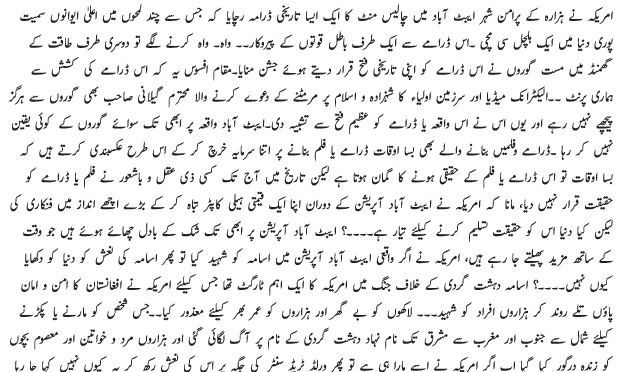 امریکہ نے ہزارہ کے پرامن شہر ایبٹ آباد میں چالیس منٹ کا ایک ایسا تاریخی ڈرامہ رچایا کہ جس سے چند لمحوں میں اعلیٰ ایوانوں سمیت
پوری دنیا میں ایک ہلچل سی مچی ۔اس ڈرامے سے ایک طرف باطل قوتوں کے پیروکار۔۔ واہ۔ واہ کرنے لگے تو دوسری طرف طاقت کے
گھمنڈ میں مست گوروں نے اس ڈرامے کو اپنی تاریخی فتح قرار دیتے ہوئے جشن منایا۔مقام افسوس یہ کہ اس ڈرامے کی کشش سے
ہماری پرنٹ ۔۔الیکٹرانک میڈیا اور سرزمین اولیاء کا شہزادہ و اسلام پر مرمٹنے کے دعوے کرنے والا محترم گیلانی صاحب بھی گوروں سے ہرگز
پیچھے نہیں رہے اور یوں اس نے اس واقعہ یا ڈرامے کو عظیم فتح سے تشبیہ دی۔ایبٹ آباد واقعہ پر ابھی تک سوائے گوروں کے کوئی یقین
نہیں کر رہا ۔ڈرامے وفلمیں بنانے والے بھی بسا اوقات ڈرامے یا فلم بنانے پر اتنا سرمایہ خرچ کر کے اس طرح عکسبندی کرتے ہیں کہ
بسا اوقات تو اس ڈرامے یا فلم کے حقیقی ہونے کا گمان ہوتا ہے لیکن تاریخ میں آج تک کسی ذی عقل و باشعور نے فلم یا ڈرامے کو
حقیقت قرار نہیں دیا، مانا کہ امریکہ نے ایبٹ آباد آپریشن کے دوران اپنا ایک قیمتی ہیلی کاپٹر تباہ کر کے بڑے اچھے انداز میں فنکاری کی
لیکن کیا دنیا اس کو حقیقت تسلیم کرنے کیلئے تیار ہے۔۔۔۔؟ ایبٹ آباد آپریشن پر ابھی تک شک کے بادل چھائے ہوئے ہیں جو وقت
کے ساتھ مزید پھیلتے جا رہے ہیں، امریکہ نے اگر واقعی ایبٹ آباد آپریشن میں اسامہ کو شہید کیا تو پھر اسامہ کی نعش کو دنیا کو دکھایا
کیوں نہیں۔۔۔۔؟ اسامہ دہشت گردی کے خلاف جنگ میں امریکہ کا ایک اہم ٹارگٹ تھا جس کیلئے امریکہ نے افغانستان کا امن و امان
پاؤں تلے روند کر ہزاروں افراد کو شہید۔۔۔ لاکھوں کو بے گھر اور ہزاروں کو عمر بھر کیلئے معذور کیا۔۔جس شخص کو مارنے یا پکڑنے
کیلئے شمال سے جنوب اور مغرب سے مشرق تک نام نہاد دہشت گردی کے نام پر آگ لگائی گئی اور ہزاروں مرد و خواتین اور معصوم بچوں
کو زندہ درگور کیا گیا اب اگر امریکہ نے اسے مارا ہی ہے تو پھر ورلڈ ٹریڈ سنٹر کی جگہ پر اس کی نعش رکھ کر یہ کیوں نہیں کہا جا رہا